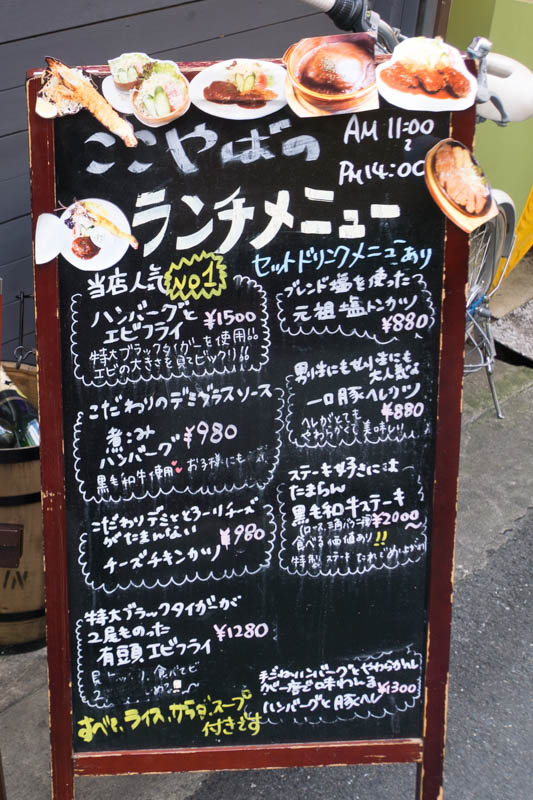 ここやばの
AM 11:00
～
PM 14:00
ランチメニュー
セットドリンクメニューあり
当店人気 No1
ハンバーグと
エビフライ ¥1500
特大ブラックタイガーを使用!!
エビの大きさを見てビックリ!!
こだわりのデミグラスソース
煮込み
ハンバーグ ¥980
黒毛和牛使用♥ お子様にも
こだわりデミととろーりチーズ
がたまんない
チーズチキンカツ ¥980
特大ブラックタイガーが
2尾ものった
有頭エビフライ ¥1280
すべて、ライス、からダ、スープ
付きです
ブレンド塩を使った
元祖塩トンカツ
¥880
男性にも女性にも
大人気な
一口豚ヘレカツ
¥880
ヘレがとても
やわらかくて美味しい
ステーキ好きには
たまらん
黒毛和牛ステーキ
¥2000～
食べる価値あり!!
特製ステーキたれで
手ごねハンバーグとやわらかい
が一度で味わえる
ハンバーグと豚ヘレ ¥1300